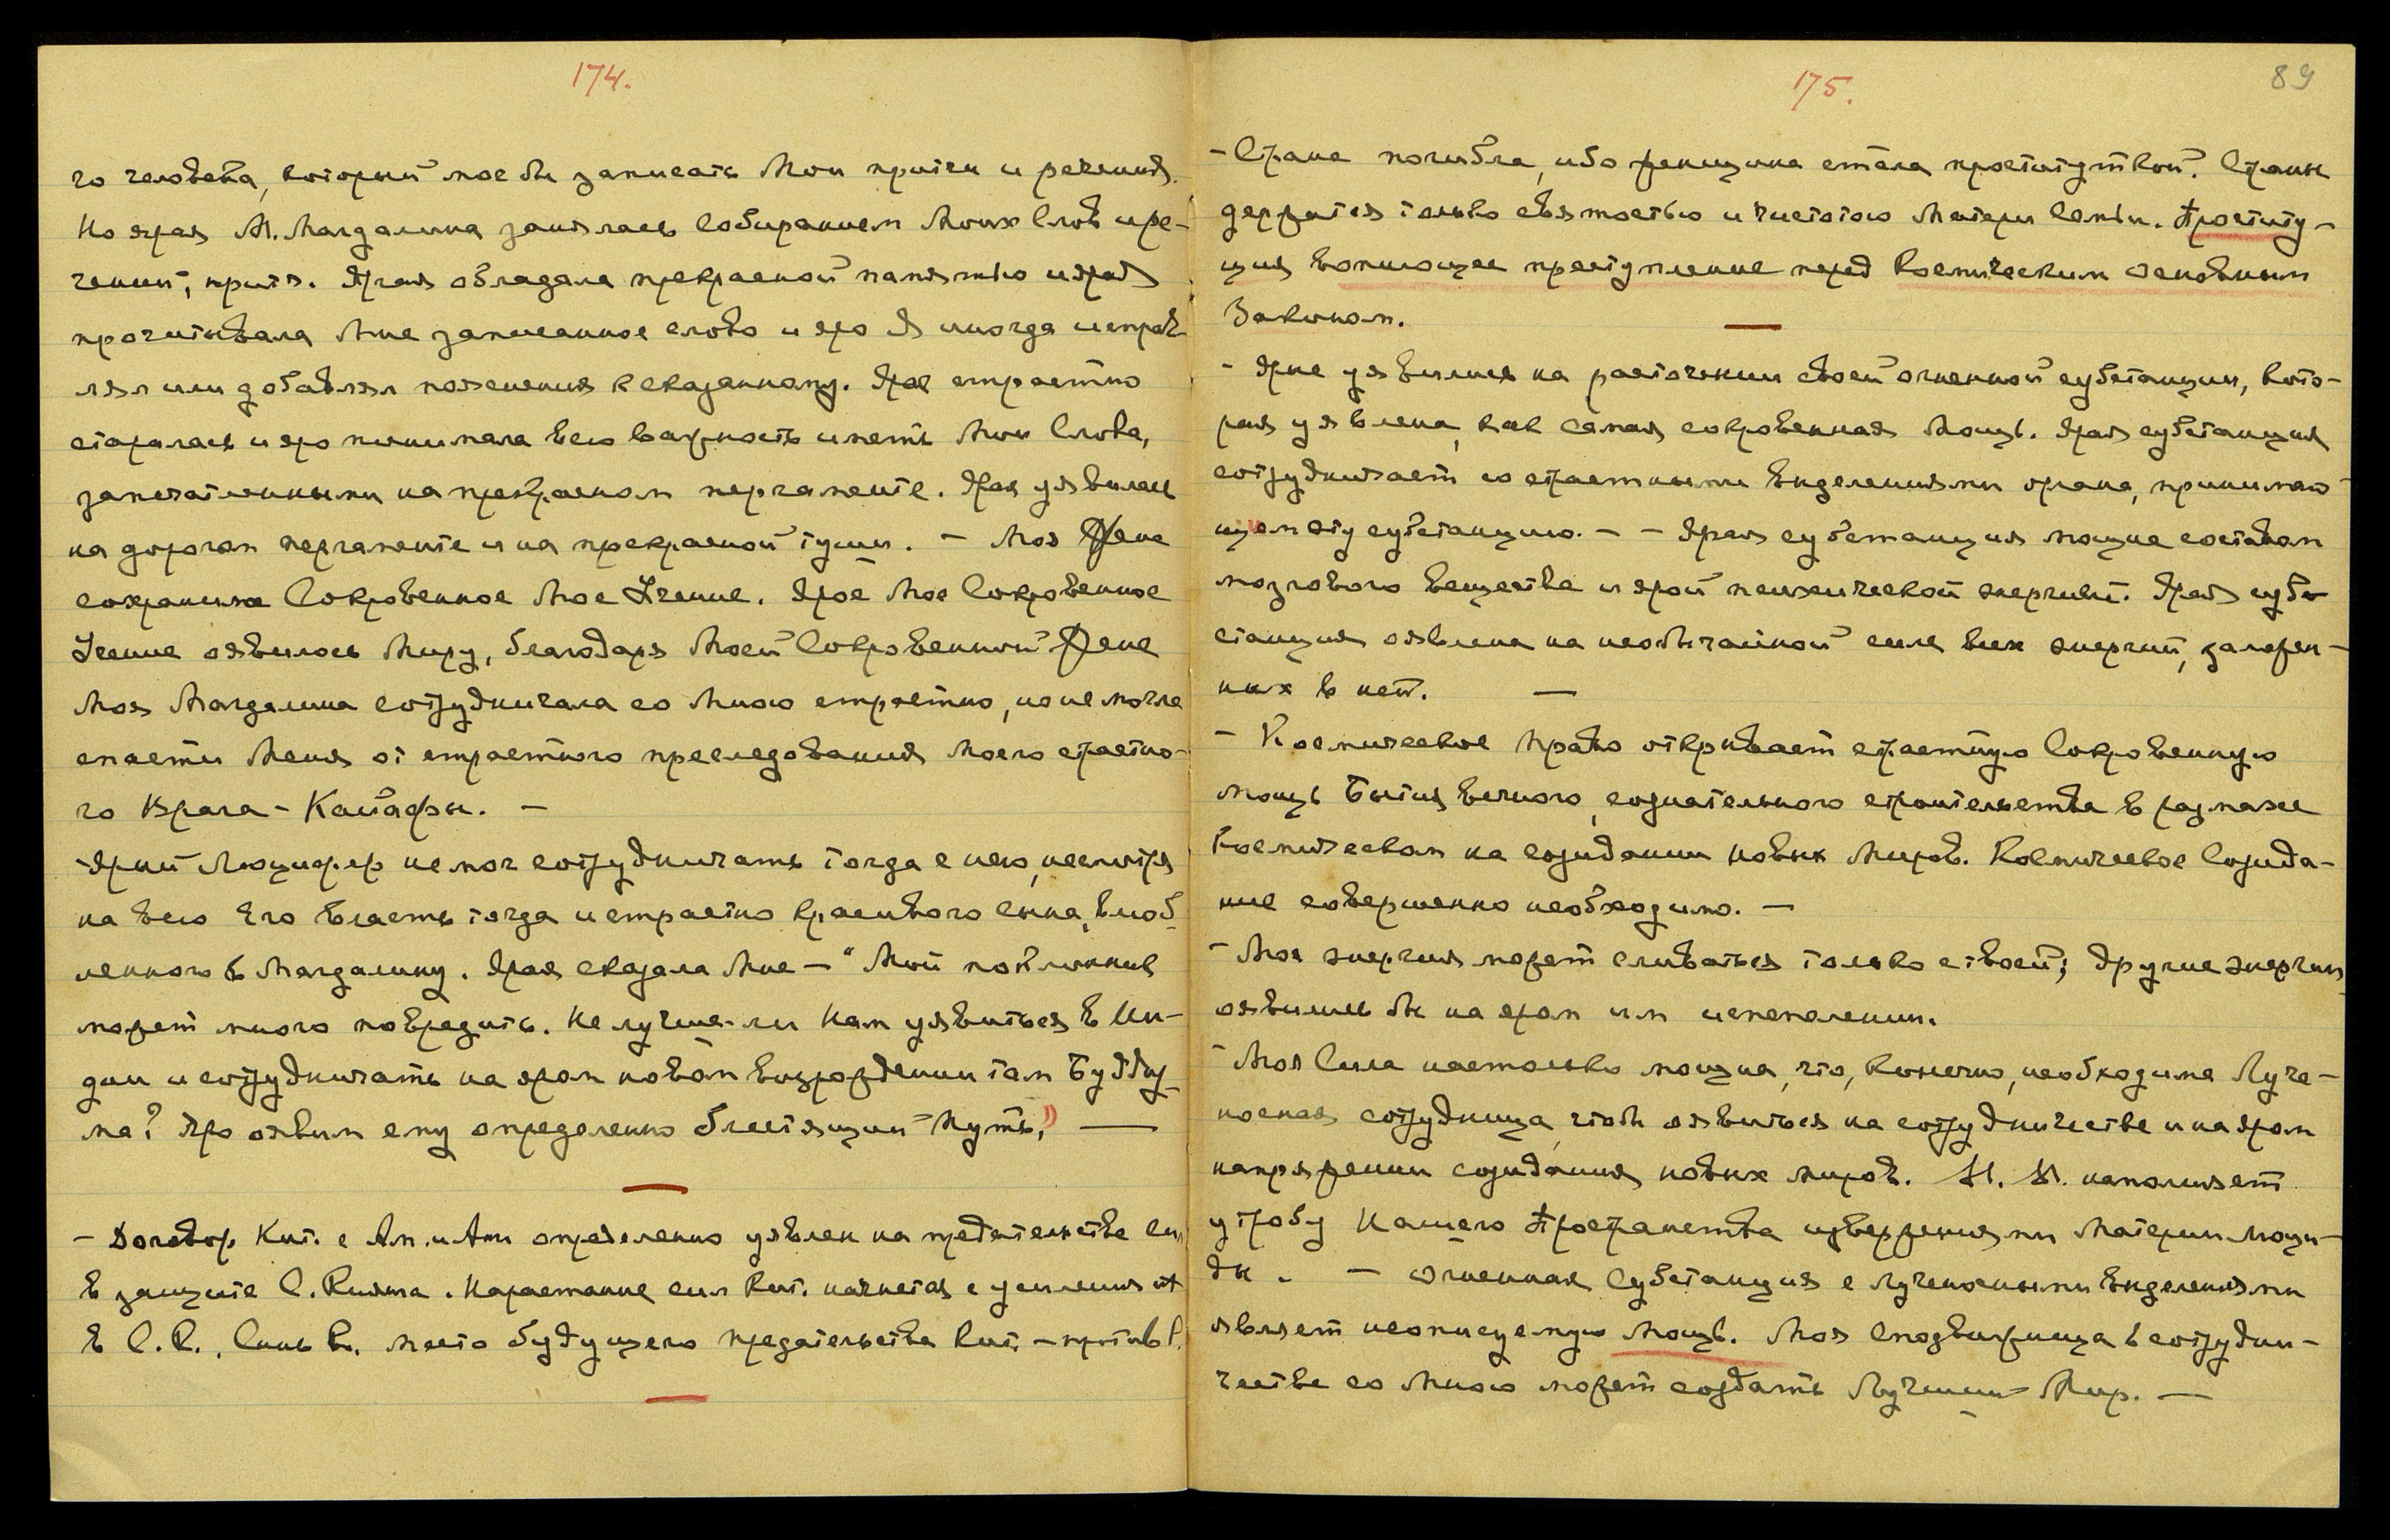 174.
го человека, который мог бы записать Мои притчи и речения.
Но ярая М. Магдалина занялась собиранием Моих Слов и ре-
чений, притч. Ярая обладала прекрасной памятью и ярая
прочитывала Мне записанное слово и яро Я иногда исправ-
лял или добавлял пояснения к сказанному. Ярая страстно
старалась и яро понимала всю важность иметь Мои Слова,
запечатленными на прекрасном пергаменте. Ярая уявилась
на дорогом пергаменте и на прекрасной туши. – Моя Жена
сохранила Сокровенное Мое Учение. Ярое Мое Сокровенное
Учение оявилось Миру, благодаря Моей Сокровенной Жене
Моя Магдалина сотрудничала со Мною страстно, но не могла
спасти Меня от страстного преследования Моего страстно-
го Врага – Кайафы. –
– Ярый Люцифер не мог сотрудничать тогда с нею, несмотря
на всю Его власть тогда и страстно красивого сына, влюб-
ленного в Магдалину. Ярая сказала Мне – "Мой поклонник
может много повредить. Не лучше-ли Нам уявиться в Ин-
дии и сотрудничать на яром новом возрождении там Буддиз-
ма? Яро оявим ему определенно блестящий Путь." —
– Договор Кит. с Ам. и Анг определенно уявлен на предательстве
в защите С. Кияша. Нарастание сил Кит. начнется с усиления их
в С.К., Синь К. место будущего предательства Кит. – против
175.
89
– Страна погибла, ибо женщина стала проституткой. Страны
держатся только святостью и чистотою Матери Семьи. Проститу-
ция вопиющее преступление перед Космическим Основным
Законом.
– Ярые уявились на расточении своей огненной субстанции, кото-
рая уявлена, как самая сокровенная Мощь. Ярая субстанция
сотрудничает со страстными выделениями органа, принимаю-
щем эту субстанцию. – – Ярая субстанция мощна составом
мозгового вещества и ярой психической энергией. Ярая суб-
станция оявлена на необычайной силе всех энергий, заложен-
ных в ней. —
– Космическое Право открывает страстную Сокровенную
мощь Бытия вечного, сознательного строительства в размахе
Космическом на создании новых Миров. Космическое Созида-
ние совершенно необходимо. –
– Моя энергия может сливаться только с твоей; другие энергии
оявились бы на яром им испепелении.
– Моя Сила настолько мощна, что, конечно, необходима Луче-
носная сотрудница, чтобы оявиться на сотрудничестве и на яром
напряжении созидания новых миров. Н. Н. наполняет
утробу Нашего Пространства извержениями Материи Мощи-
ды. – Огненная Субстанция с лученосными выделениями
являет неописуемую Мощь. Моя Сподвижница в сотрудни-
честве со Мною может создать Лучший Мир. —